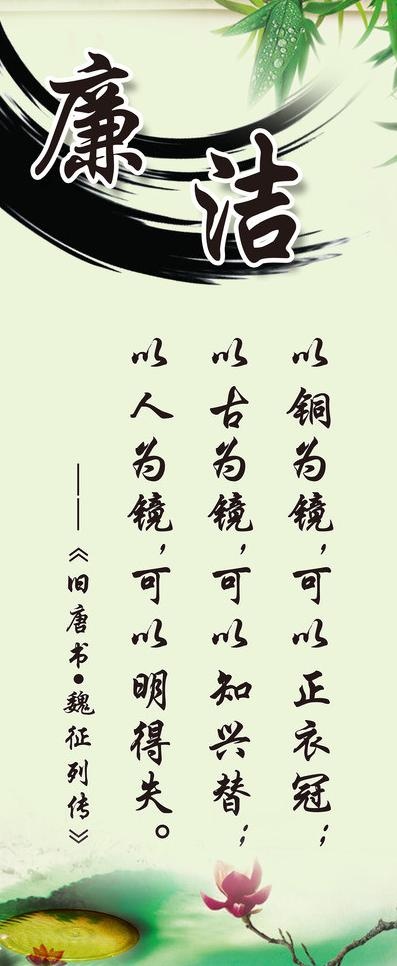 廉洁
以铜为镜，可以正衣冠；
以古为镜，可以知兴替；
以人为镜，可以明得失。
——《旧唐书•魏征列传》